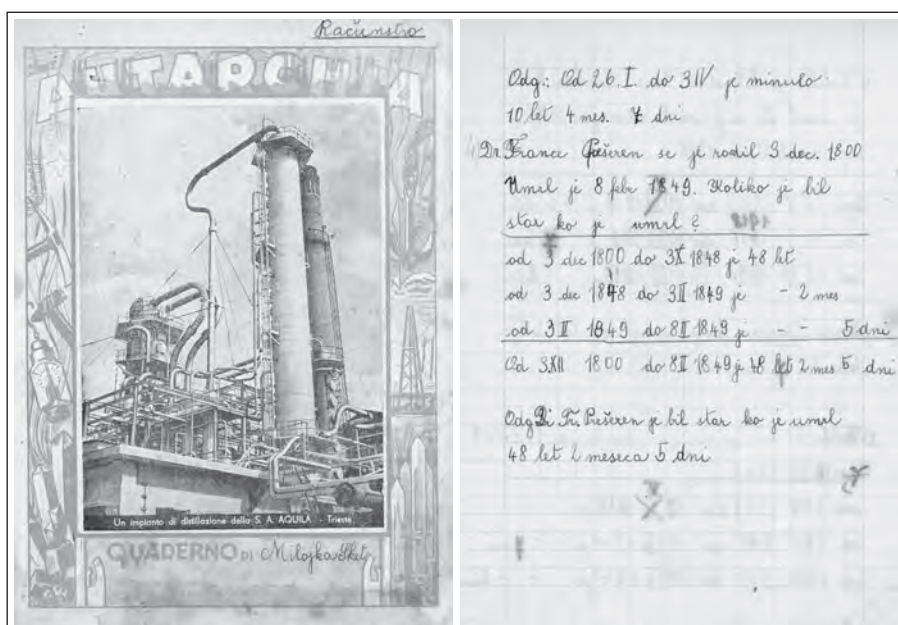 Računstvo
AUTARCHIA
Un impianto di distillazione della S. A. AQUILA - Trieste
QUADERNO DI Milojka Sket
Odg.: Od 26. I. do 3 IV je minulo
10 let 4 mes. 7 dni
Dr. France Prešeren se je rodil 3 dec. 1800
Umrl je 8 febr 1849. Koliko je bil
star ko je umrl?
od 3 dec 1800 do 3X 1848 je 48 let
od 3 dec 1848 do 3II 1849 je - 2 mes
od 3 II 1849 do 8II 1849 je - - 5 dni
Od 3.XII 1800 do 8II 1849 je 48 let 2 mes 5 dni
Odg Dr. Fr. Prešeren je bil star ko je umrl
48 let 2 meseca 5 dni